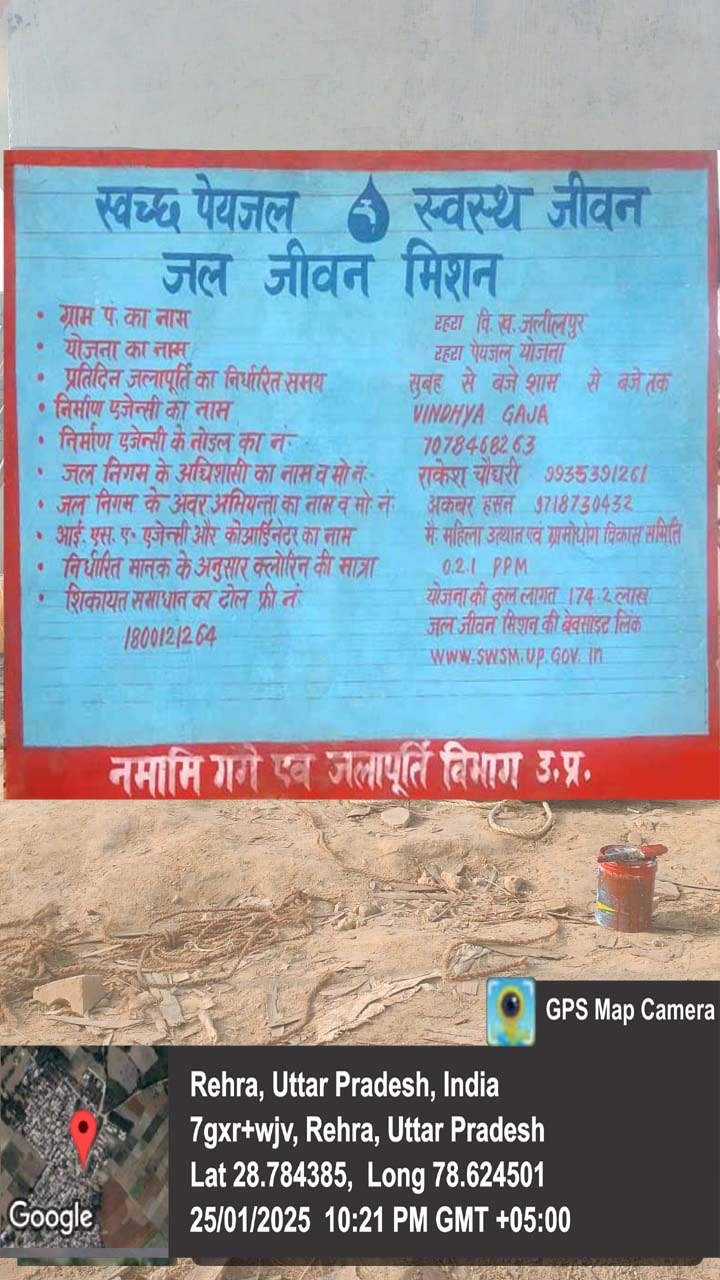 स्वच्छ पेयजल स्वस्थ जीवन
जल जीवन मिशन
• ग्राम पं. का नास टहरा वि. ख. जलीलपुर
• योजना का नाम टहरा पेयजल योजना
• प्रतिदिन जलापूर्ति का निर्धारित समय सुबह से बजे शाम से बजे तक
• निर्माण एजेन्सी का नाम VINDHYA GAJA
• निर्माण एजेन्सी के नोडल का नं- 7078468263
• जल निगम के अधिशासी का नाम व मो नं- राकेश चौधरी 9935391261
• जल निगम के अवर अभियन्ता का नाम व मो. नं अकबर हसन 9718730432
• आई. एस. ए- एजेन्सी और कोआर्डिनेटर का नाम मै. महिला उत्थान एवं ग्रामोधोग विकास समिति
• निर्धारित मानक के अनुसार क्लोरिन की मात्रा 0.2.1 PPM
• शिकायत समाधान का टोल फ्री नं. योजना की कुल लागत 174.2 लाख
1800121264 जल जीवन मिशन की बेवसाइट लिंक
www.SWSM.UP.GOV.in
नमामि गंगे एवं जलापूर्ति विभाग उ.प्र.
GPS Map Camera
Rehra, Uttar Pradesh, India
7gxr+wjv, Rehra, Uttar Pradesh
Lat 28.784385, Long 78.624501
25/01/2025 10:21 PM GMT +05:00
Google